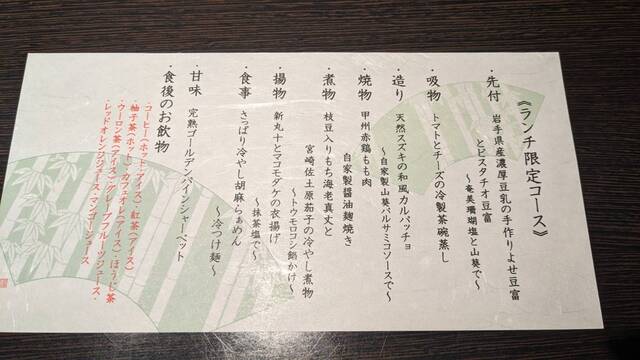 《ランチ限定コース》
・先付 岩手県産濃厚豆乳の手作りよせ豆富
とピスタチオ豆富
～奄美珊瑚塩と山葵で～
・吸物 トマトとチーズの冷製茶碗蒸し
・造り 天然スズキの和風カルパッチョ
～自家製山葵バルサミコソースで～
・焼物 甲州赤鶏もも肉
自家製醤油麹焼き
・煮物 枝豆入りもち海老真丈と
宮崎佐土原茄子の冷やし煮物
～トウモロコシ餡かけ～
・揚物 新丸十とマコモダケの衣揚げ
～抹茶塩で～
・食事 さっぱり冷やし胡麻らぁめん
～冷つけ麺～
・甘味 完熟ゴールデンパインシャーベット
・食後のお飲物
・コーヒー(ホット・アイス)・紅茶(アイス)
・柚子茶(ホット)・カフェオレ(アイス)・ほうじ茶
・ウーロン茶(アイス)・グレープフルーツジュース・
・レッドオレンジジュース・マンゴージュース